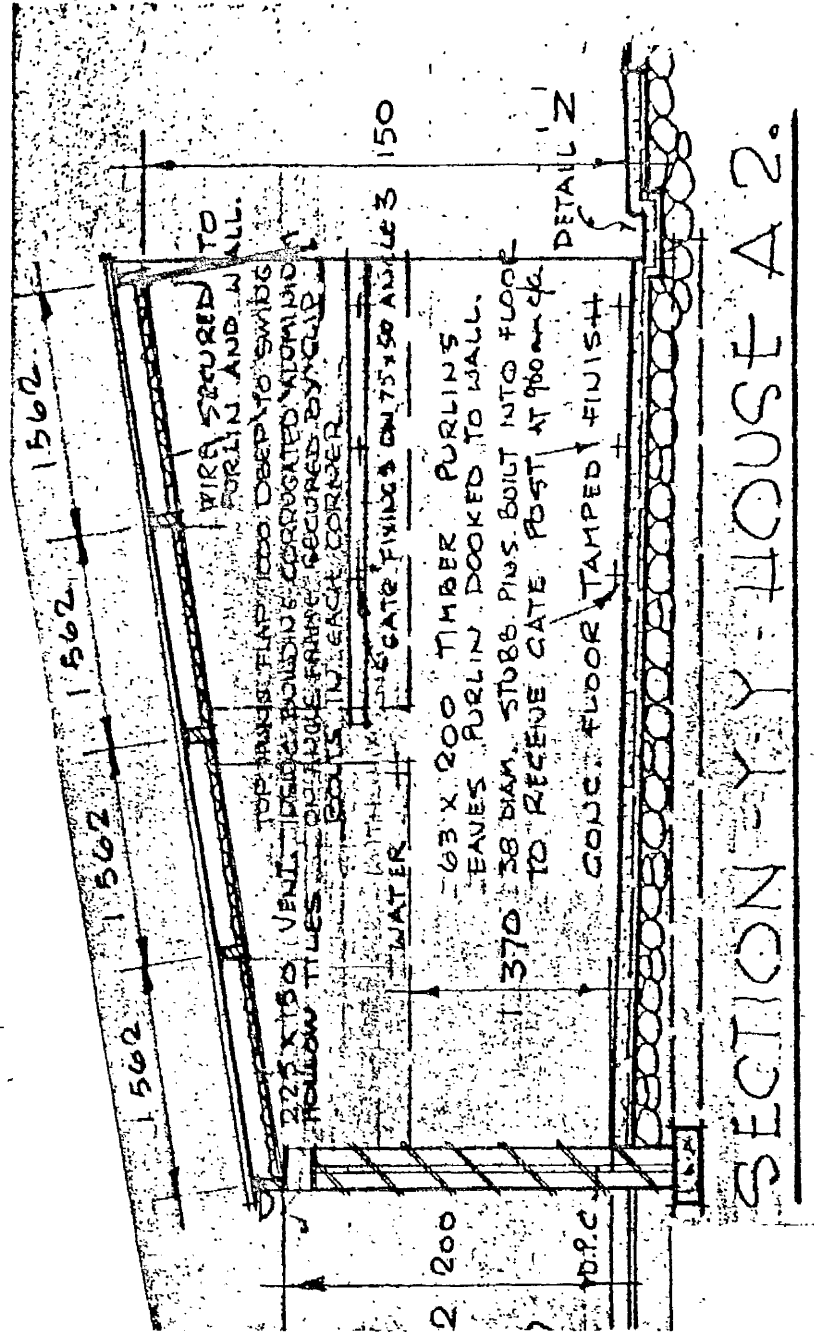 1562
1562
1562
1562
WIRE SECURED TO
PURLIN AND WALL.
TOP FLAP DEEP TO SWING
225 X 150 VENT. INSIDE BUILDING CORRUGATED ALUMINIUM
HOLLOW TILES ON ANGLE FRAME SECURED BY CLIP
BOLTS IN EACH CORNER
GATE FIXINGS ON 75 x 50 ANGLE 3
150
WATER
63 X 200 TIMBER PURLINS
EAVES PURLIN DOOKED TO WALL.
1370
38 DIAM. STUBB PINS BUILT INTO FLOOR
TO RECEIVE GATE POST AT 900mm c/c
CONC. FLOOR TAMPED FINISH
DETAIL 'Z'
2 200
D.P.C.
SECTION - Y-Y - HOUSE A 2.